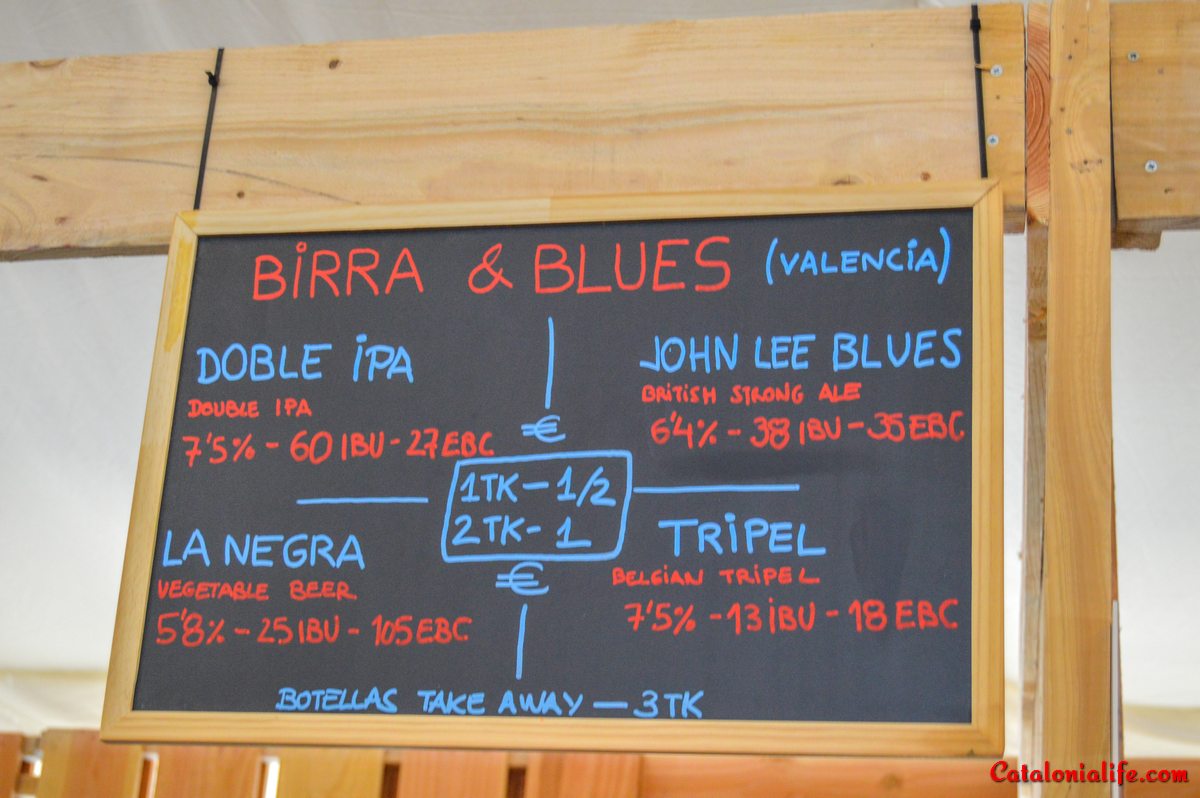 BIRRA & BLUES (VALENCIA)
DOBLE IPA
DOUBLE IPA
7'5% - 60 IBU - 27 EBC
JOHN LEE BLUES
BRITISH STRONG ALE
6'4% - 38 IBU - 35 EBC
€
1TK - 1/2
2TK - 1
€
LA NEGRA
VEGETABLE BEER
5'8% - 25 IBU - 105 EBC
TRIPEL
BELGIAN TRIPEL
7'5% - 13 IBU - 18 EBC
BOTELLAS TAKE AWAY — 3 TK
Catalonialife.com